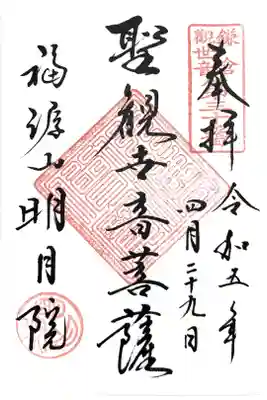 奉拝
令和五年
四月二十九日
聖観世音菩薩
福源山明月院
鎌倉
観世音